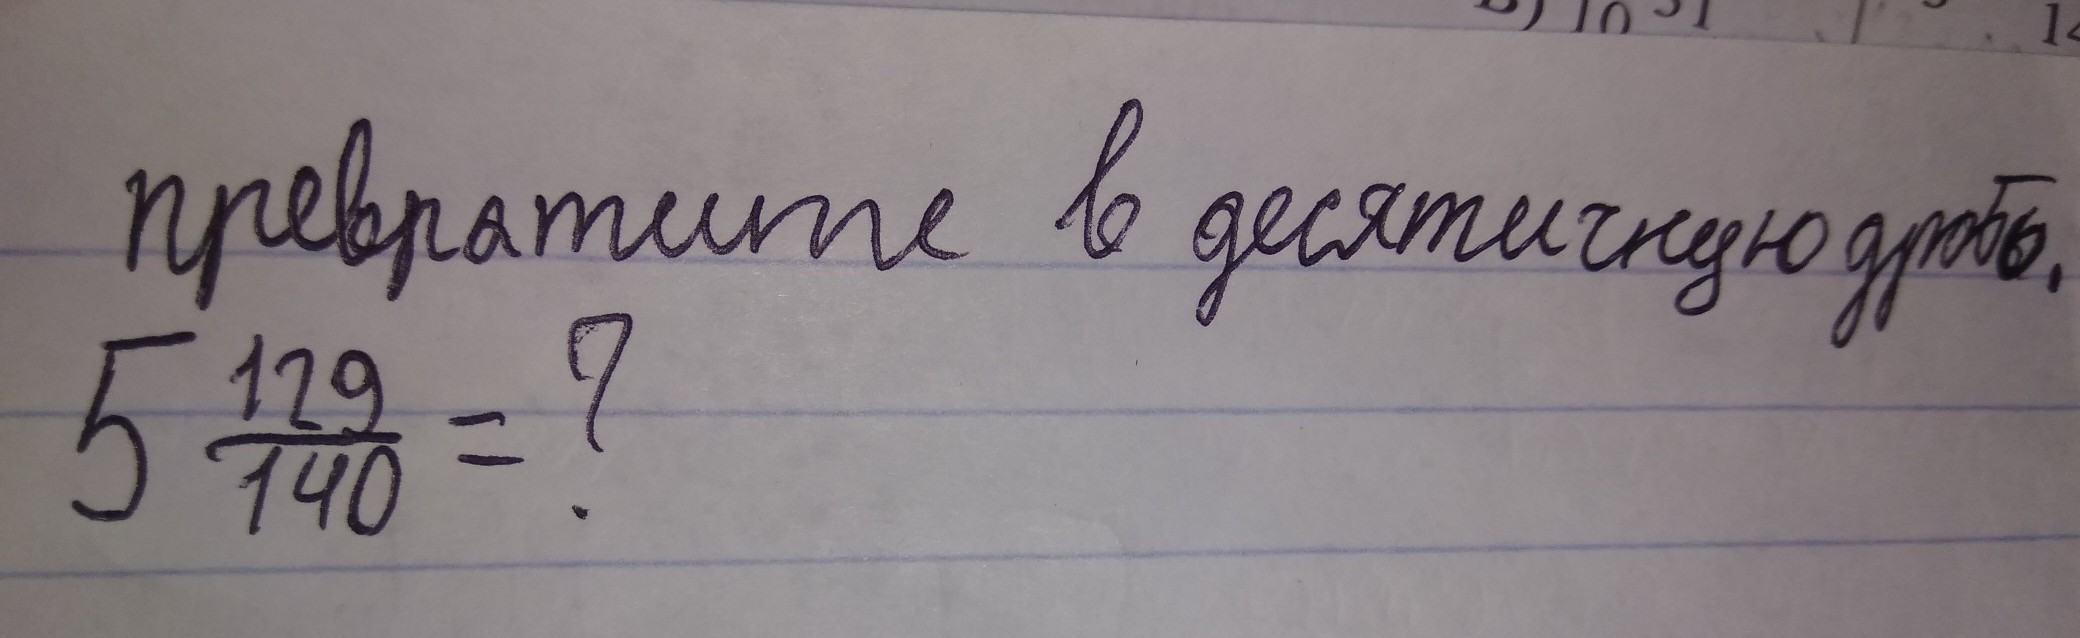 превратите в десятичную дробь.
5 129/140 = ?